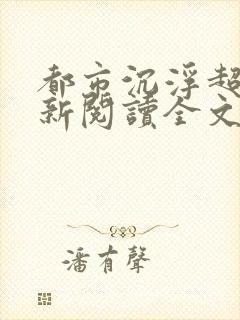 都市沉浮超
新閱讀全文
潘有聲